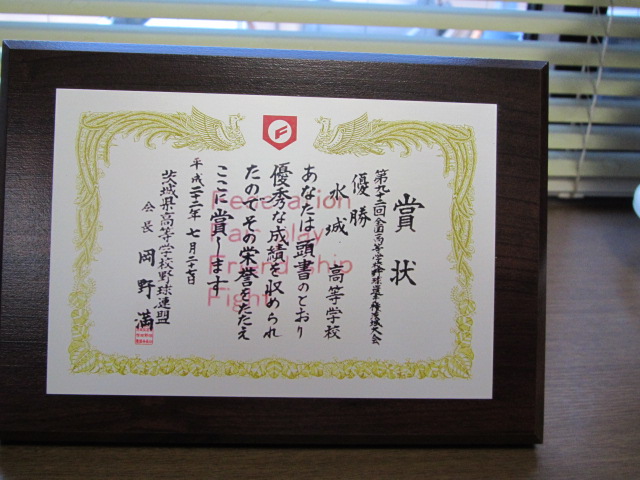 賞状
第九十二回全国高等学校野球選手権茨城大会
優勝
水城高等学校
あなたは頭書のとおり
優秀な成績を収められ
たのでその栄誉をたたえ
ここに賞します
平成二十二年七月二十七日
茨城県高等学校野球連盟
会長 岡野満
F
Federation
Fair play
Friendship
Fight